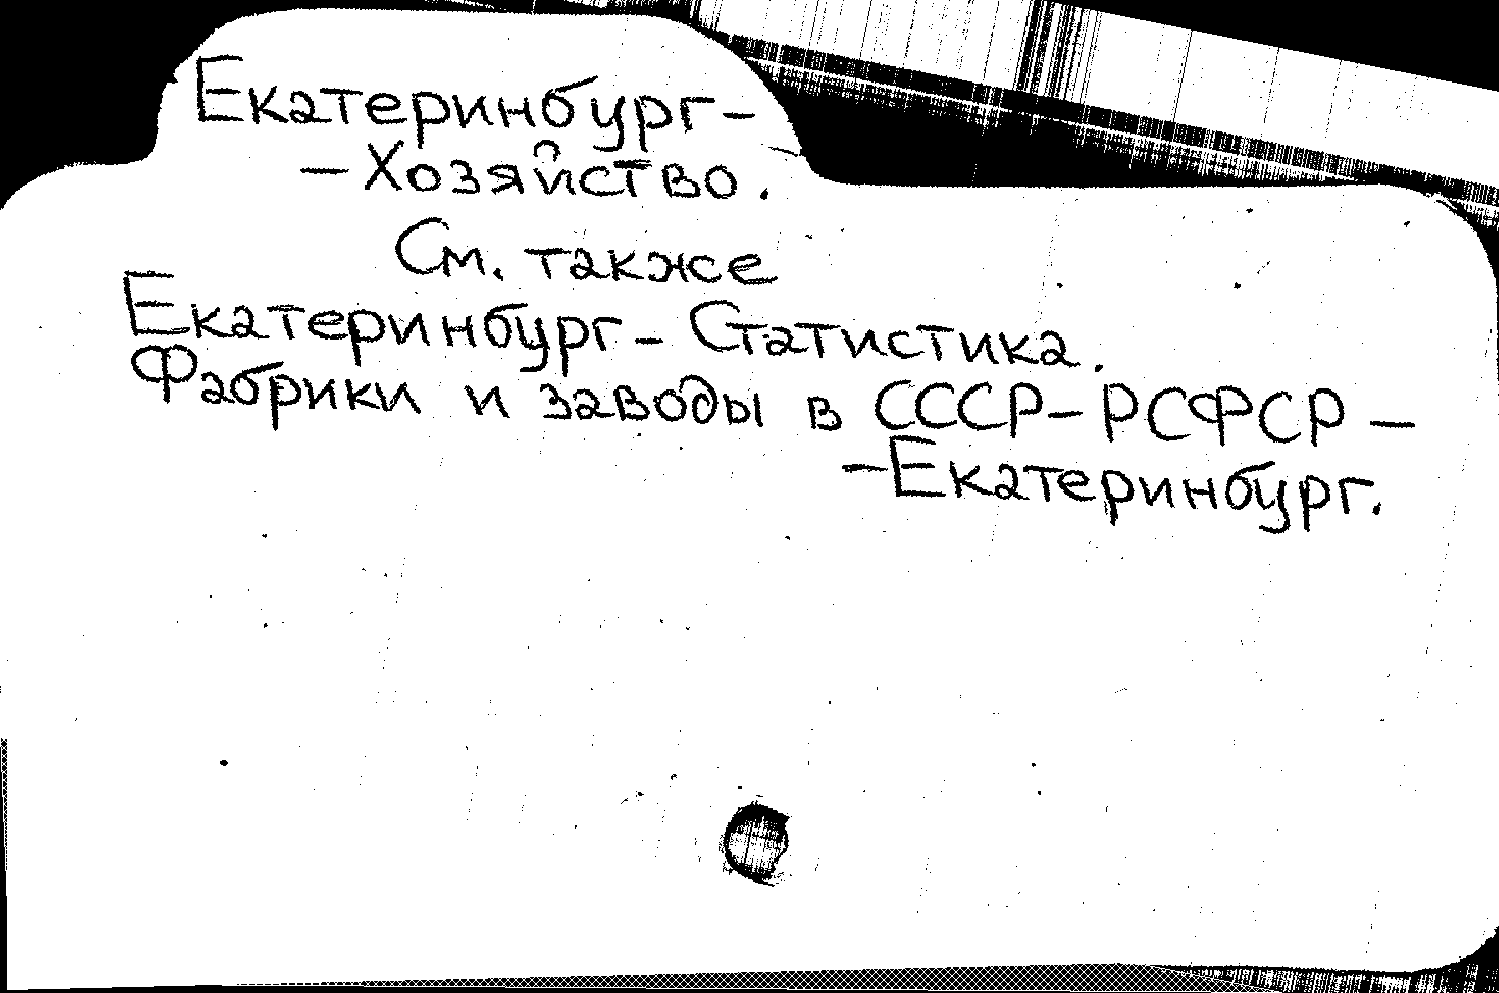 Екатеринбург-
-Хозяйство.
См. также
Екатеринбург- Статистика.
Фабрики и заводы в СССР-РСФСР-
-Екатеринбург.